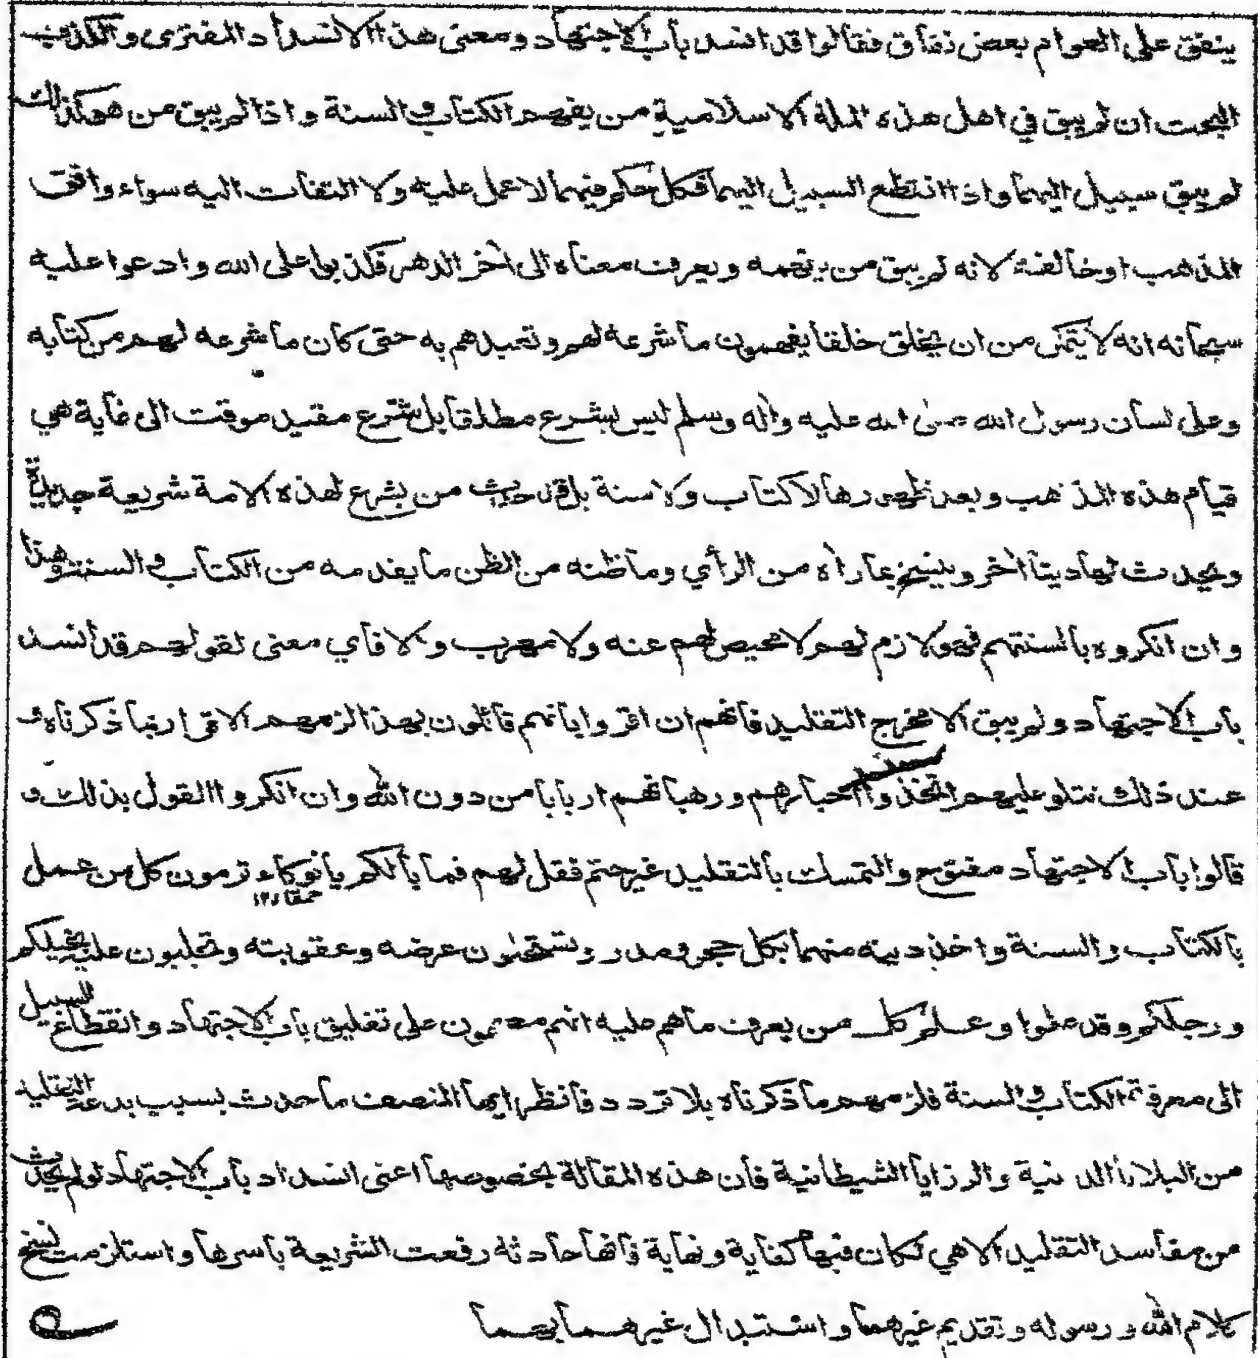 ينفق على العوام بعض نفاق فقالوا قد انسد باب الاجتهاد ومعنى هذا الانسداد المفترى والكذب
البحت ان لم يبق في اهل هذه الملة الاسلامية من يفهم الكتاب والسنة واذا لم يبق من هو كذلك
لم يبق سبيل اليهما واذا انقطع السبيل اليهما فكل حكم فيهما لا عمل عليه ولا التفات اليه سواء وافق
المذهب او خالفه لانه لم يبق من يفهمه ويعرف معناه الى آخر الدهر فكذبوا على الله وادعوا عليه
سبحانه انه لا يتمكن من ان يخلق خلقا يفهمون ما شرعه لهم وتعبدهم به حتى كان ما شرعه لهم من كتابه
وعلى لسان رسول الله صلى الله عليه وآله وسلم ليس بشرع مطلقا بل شرع مقيد موقت الى غاية هي
قيام هذه المذهب وبعد ظهورها لا كتاب ولا سنة بل قد حدث من يشرع لهذه الامة شريعة جديدة
ويحدث لها دينا آخر وينسخ بما رآه من الرأي وما ظنه من الظن ما يقدمه من الكتاب والسنة وهذا
وان انكروه بالسنتهم فهو لازم لهم لا محيص لهم عنه ولا مهرب والا فاي معنى لقولهم قد انسد
باب الاجتهاد ولم يبق الا محرج التقليد فانهم ان اقروا بانهم قائلون بهذا لزمهم الاقرار بما ذكرناه و
عند ذلك نتلو عليهم اتخذوا احبارهم ورهبانهم اربابا من دون الله وان انكروا القول بذلك و
قالوا باب الاجتهاد مفتوح والتمسك بالتقليد غير حتم فقل لهم فما بالكم يا نوكاء ترمون كل من عمل
حمقا ١٢
بالكتاب والسنة واخذ دينه منهما بكل حجر ومدر وتستحلون عرضه وعقوبته وتجلبون عليه بخيلكم
ورجلكم وقد علموا وعلم كل من يعرف ما هم عليه انهم مصممون على تغليق باب الاجتهاد وانقطاع السبيل
الى معرفة الكتاب والسنة فلزمهم ما ذكرناه بلا تردد فانظر ايها المنصف ما حدث بسبب بدعة التقليد
من البلايا الدينية والرزايا الشيطانية فان هذه المقالة بخصوصها اعنى انسداد باب الاجتهاد لو لم يحدث
من مفاسد التقليد الا هي لكان فيها كفاية ونهاية فانها حادثة رفعت الشريعة باسرها واستلزمت نسخ
كلام الله ورسوله وتقديم غيرهما واستبدال غيرهما بهما